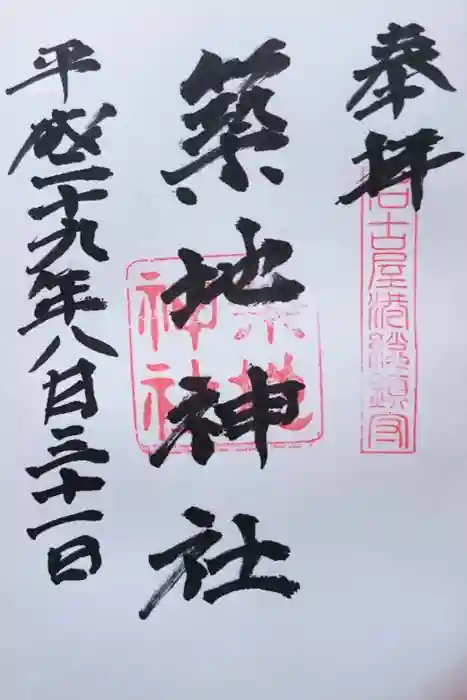 奉拝
名古屋港総鎮守
築地神社
築地神社
平成二十九年八月三十一日